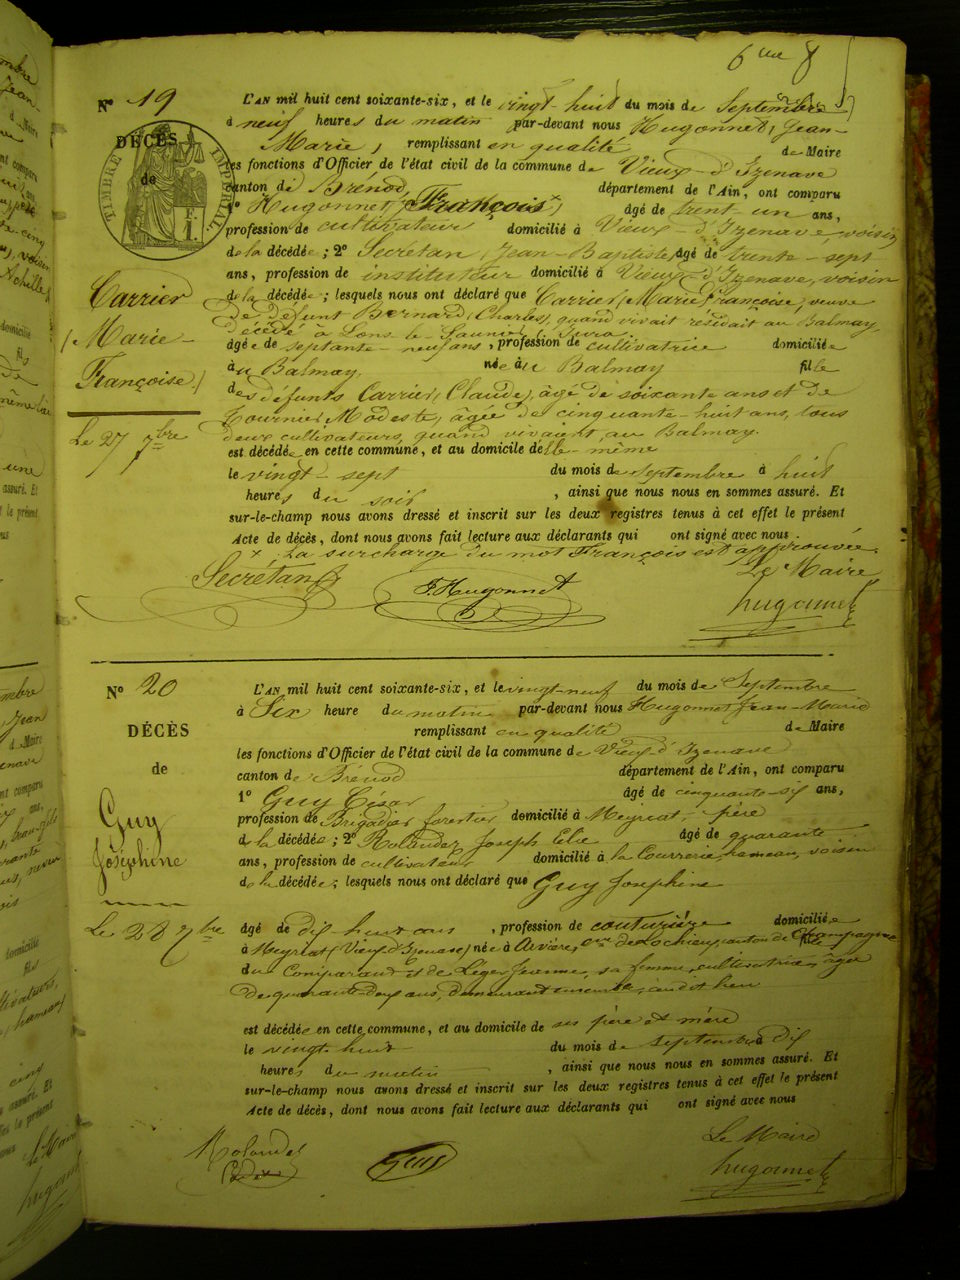 6me 8
N° 19
DÉCÈS
de
TIMBRE IMPÉRIAL
F.
1.
Carrier
(Marie-
Françoise)
Le 27 7bre
L'AN mil huit cent soixante-six, et le vingt-huit du mois de Septembre
à neuf heures du matin par-devant nous Hugonnet, Jean-
Marie, remplissant en qualité de Maire
les fonctions d'Officier de l'état civil de la commune de Vieux-d'Izenave
canton de Brénod, département de l'Ain, ont comparu
1° Hugonnet (François x) âgé de trent-un ans,
profession de cultivateur domicilié à Vieux-d'Izenave voisin
de la décédée ; 2° Secrétan (Jean-Baptiste) âgé de trente-sept
ans, profession de instituteur domicilié à Vieux-d'Izenave, voisin
de la décédée ; lesquels nous ont déclaré que Carrier (Marie Françoise), veuve
de défunt Bernard (Charles), quand vivait résidait au Balmay,
décédé à Lons-le-Saunier, Jura
âgée de septante-neuf ans, profession de cultivatrice domiciliée
au Balmay née à au Balmay fille
des défunts Carrier (Claude), âgé de soixante ans et de
Tournier Modeste, âgée de cinquante-huit ans, tous
deux cultivateurs, quand vivaient, au Balmay.
est décédée en cette commune, et au domicile d'elle-même
le vingt-sept du mois de septembre à huit
heures du soir, ainsi que nous nous en sommes assuré. Et
sur-le-champ nous avons dressé et inscrit sur les deux registres tenus à cet effet le présent
Acte de décès, dont nous avons fait lecture aux déclarants qui ont signé avec nous.
x La surcharge du mot François est approuvée.
Le Maire
Secrétan F. Hugonnet hugonnet
N° 20
DÉCÈS
de
Guy
Joséphine
Le 28 7bre
L'AN mil huit cent soixante-six, et le vingt-neuf du mois de Septembre
à Six heure du matin par-devant nous Hugonnet Jean-Marie
remplissant en qualité de Maire
les fonctions d'Officier de l'état civil de la commune de Vieux d'Izenave
canton de Brénod département de l'Ain, ont comparu
1° Guy César âgé de cinquante-six ans,
profession de Brigadier forestier domicilié à Meyriat, père
de la décédée ; 2° Rolandez Joseph Elie âgé de quarante
ans, profession de cultivateur domicilié à la Courrerie, hameau, voisin
de la décédée ; lesquels nous ont déclaré que Guy Josephine
âgé de dix huit ans, profession de couturière domiciliée
à Meyriat (Vieux d'Izenave) née à Arvière, de Lochieu, canton de Champagne fille
du Comparant et de Léger Jeanne, sa femme, cultivatrice, âgée
de quarante-deux ans, demeurant ensemble, au dit lieu
est décédée en cette commune, et au domicile de ses père et mère
le vingt-huit du mois de septembre à dix
heures du matin, ainsi que nous nous en sommes assuré. Et
sur-le-champ nous avons dressé et inscrit sur les deux registres tenus à cet effet le présent
Acte de décès, dont nous avons fait lecture aux déclarants qui ont signé avec nous
Le Maire
Rolandez Guy hugonnet